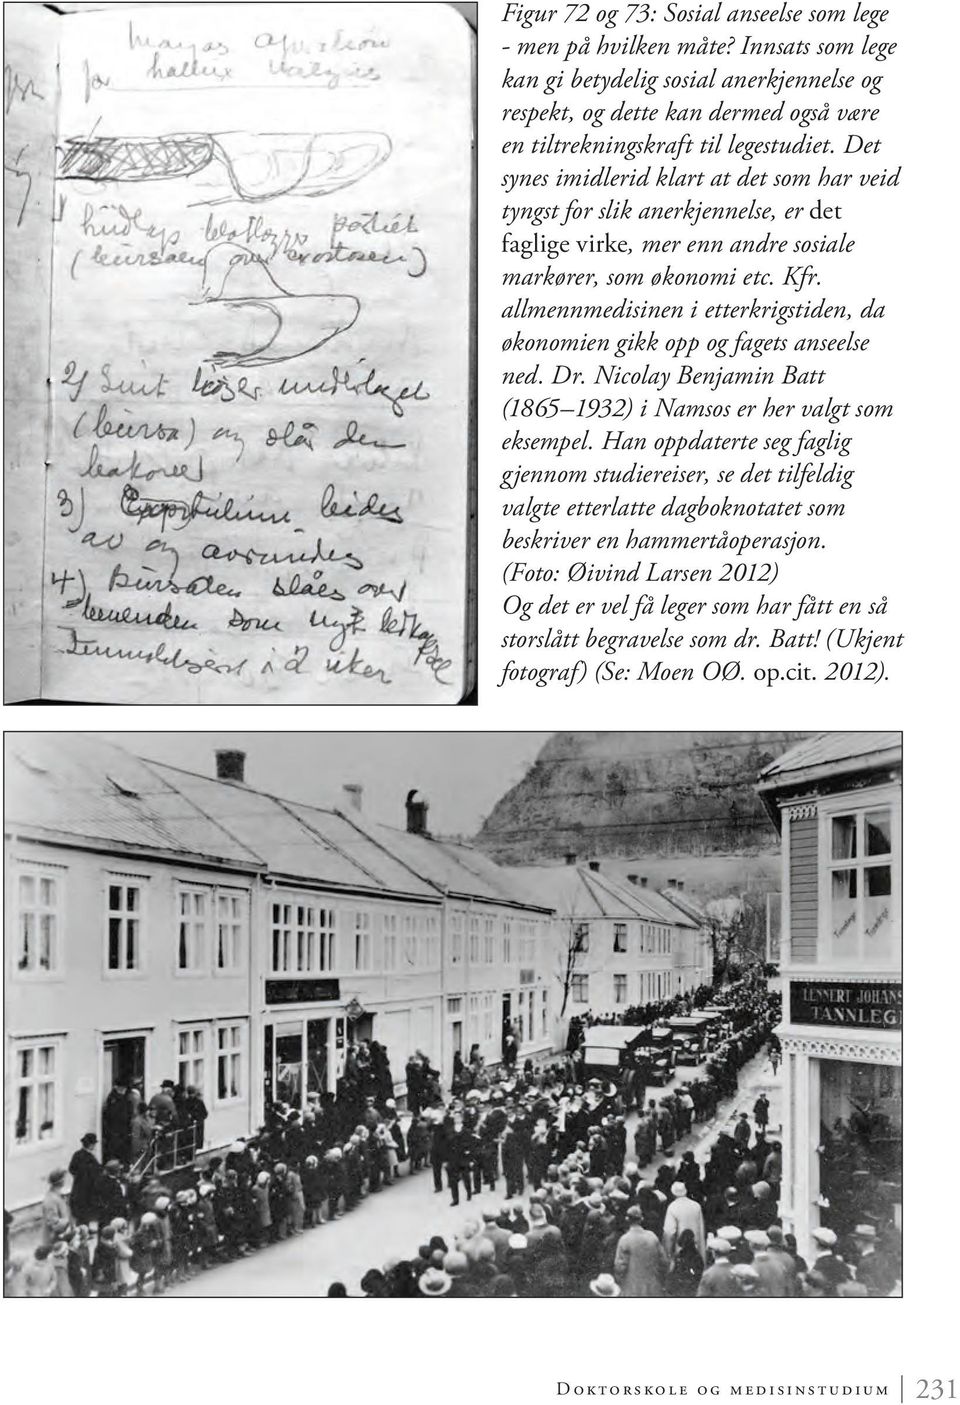 mayos operation
for hallux valgus
hudlap
(bursaen over exostosen)
2) Snit underlaget
(bursa) og slår den
3) leides
av og avrundes
4) Bursaen slåes over
som nyt
i 2 uker
Figur 72 og 73: Sosial anseelse som lege
- men på hvilken måte? Innsats som lege
kan gi betydelig sosial anerkjennelse og
respekt, og dette kan dermed også være
en tiltrekningskraft til legestudiet. Det
synes imidlerid klart at det som har veid
tyngst for slik anerkjennelse, er det
faglige virke, mer enn andre sosiale
markører, som økonomi etc. Kfr.
allmennmedisinen i etterkrigstiden, da
økonomien gikk opp og fagets anseelse
ned. Dr. Nicolay Benjamin Batt
(1865–1932) i Namsos er her valgt som
eksempel. Han oppdaterte seg faglig
gjennom studiereiser, se det tilfeldig
valgte etterlatte dagboknotatet som
beskriver en hammertåoperasjon.
(Foto: Øivind Larsen 2012)
Og det er vel få leger som har fått en så
storslått begravelse som dr. Batt! (Ukjent
fotograf) (Se: Moen OØ. op.cit. 2012).
LENNERT JOHANS
TANNLEG
DOKTORSKOLE OG MEDISINSTUDIUM | 231